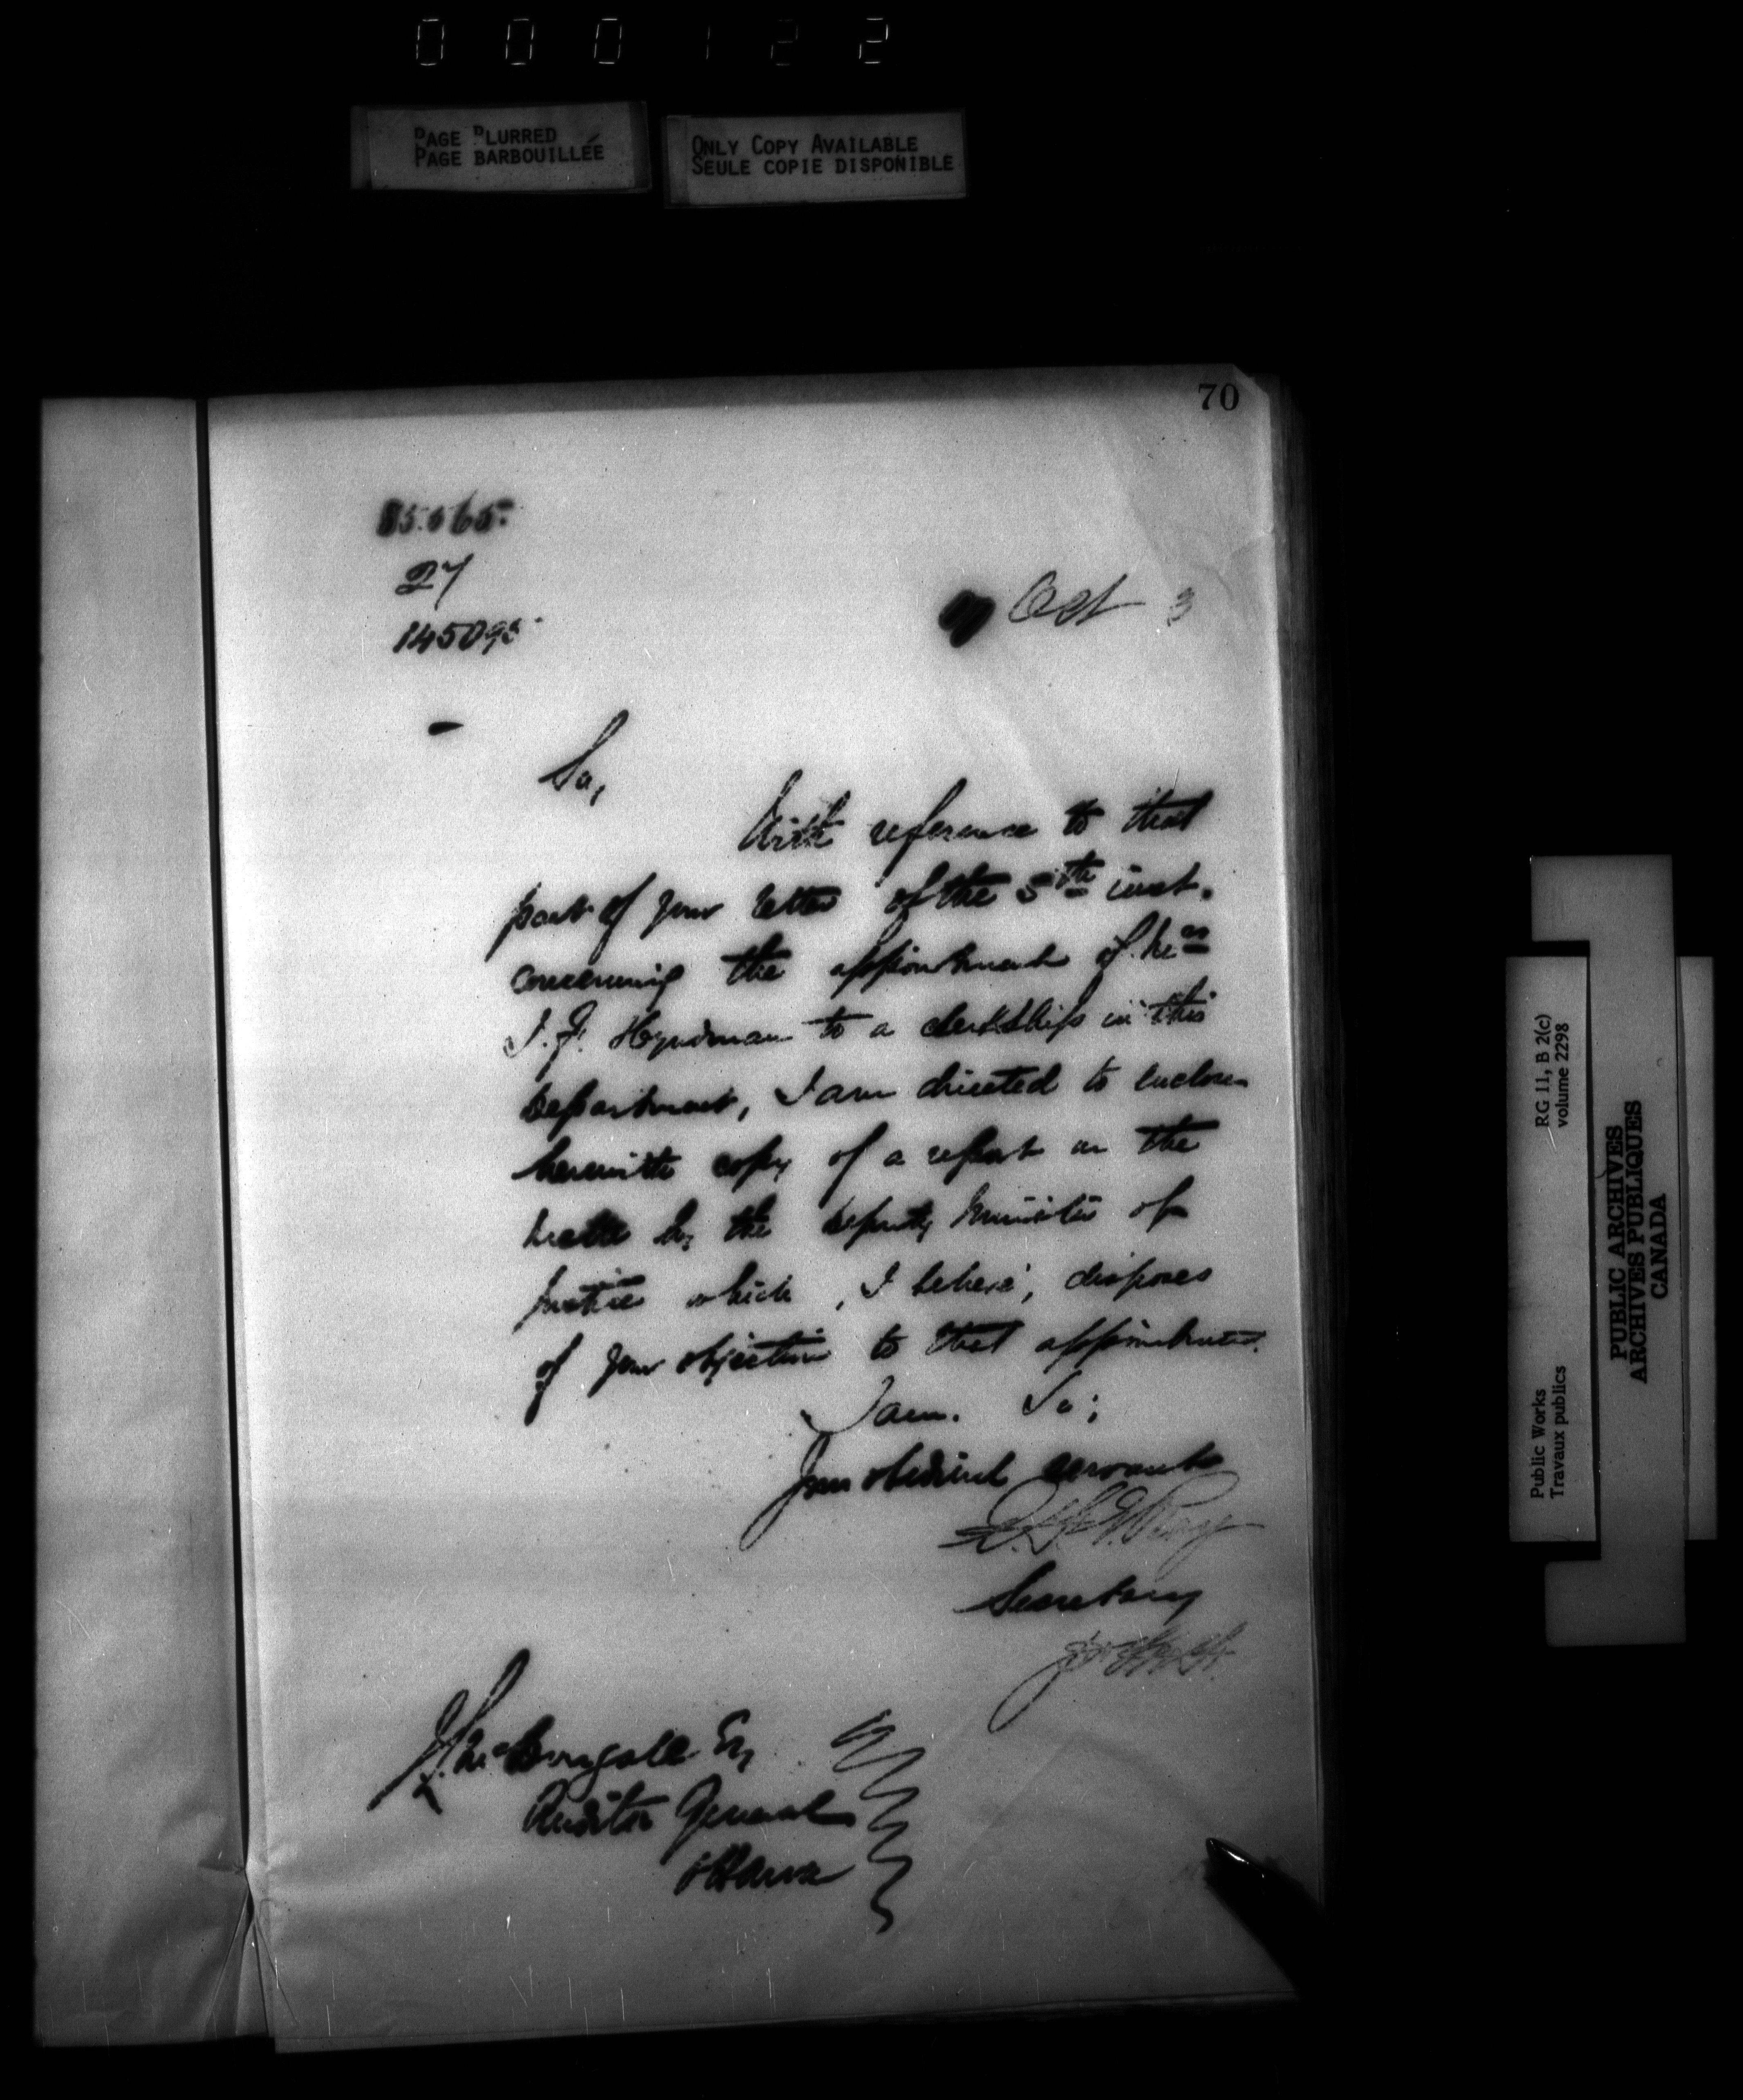 000122
PAGE BLURRED
PAGE BARBOUILLÉE
ONLY COPY AVAILABLE
SEULE COPIE DISPONIBLE
70
27
145095
Oct 3
Sir,
With reference to that
part of your letter of the 5th inst.
concerning the appointment of
J. F. Hyndman to a clerkship in this
Department, I am directed to enclose
herewith copy of a report on the
matter by the Deputy Minister of
Justice which, I believe, disposes
of your objection to that appointment.
I am. Sir;
Your obedient servant
Secretary
J. L. McDougall Esq
Auditor General
Ottawa
RG 11, B 2(c)
volume 2298
Public Works
Travaux publics
PUBLIC ARCHIVES
ARCHIVES PUBLIQUES
CANADA